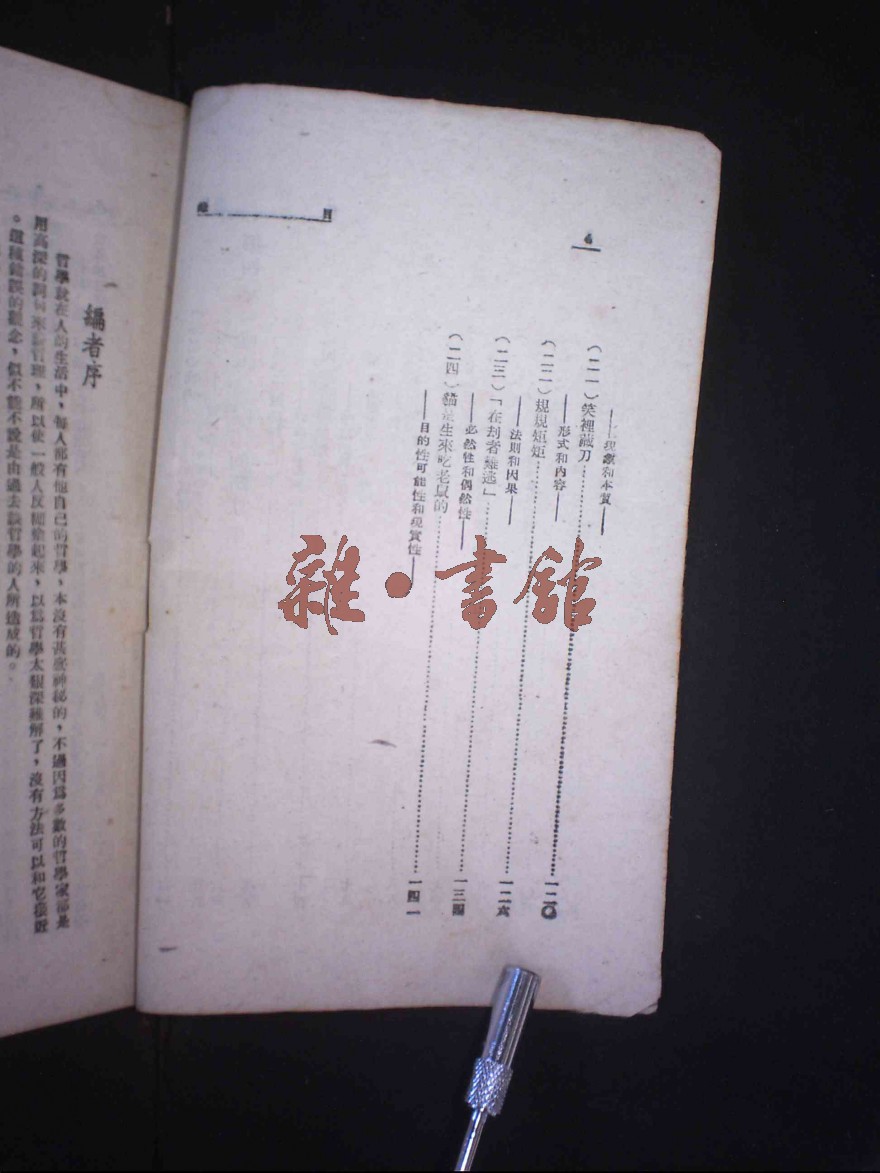 目 錄
4
——現象和本質——
(二一)笑裡藏刀……一二〇
——形式和內容——
(二二)規規矩矩……一二六
——法則和因果——
(二三)「在劫者難逃」……一三四
——必然性和偶然性——
(二四)貓是生來吃老鼠的……一四一
——目的性可能性和現實性——
雜·書館
編者序
哲學就在人的生活中,每人都有他自己的哲學,本沒有甚麼神秘的,不過因爲多數的哲學家都是
用高深的詞句來談哲理,所以使一般人反而糊起來,以爲哲學太艱深難解了,沒有方法可以和它接近
。這種錯誤的觀念,似不能不說是由過去談哲學的人所造成的。